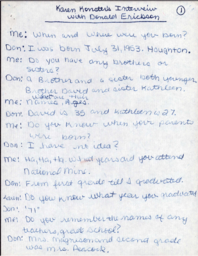 Karen Konsta's Interview
with Donald Erickson
1
Me: When and where were you born?
Don: I was born July 31, 1953. Houghton.
Me: Do you have any brothers or
sisters?
Don: A Brother and a sister both younger,
Brother David and sister Kathleen.
Me: Names, Ages.
Don: David is 35 and Kathleen is 27.
Me: Do you know when your parents
were born?
Don: I have no idea?
Me: Ha, Ha, Ha. What years did you attend
National Mine?
Don: From first grade till I graduated.
Karen: Do you know what year you graduated?
Don: "71"
Me: Do you remember the names of any
teachers, grade school?
Don: Mrs. and second grade
was Mrs.